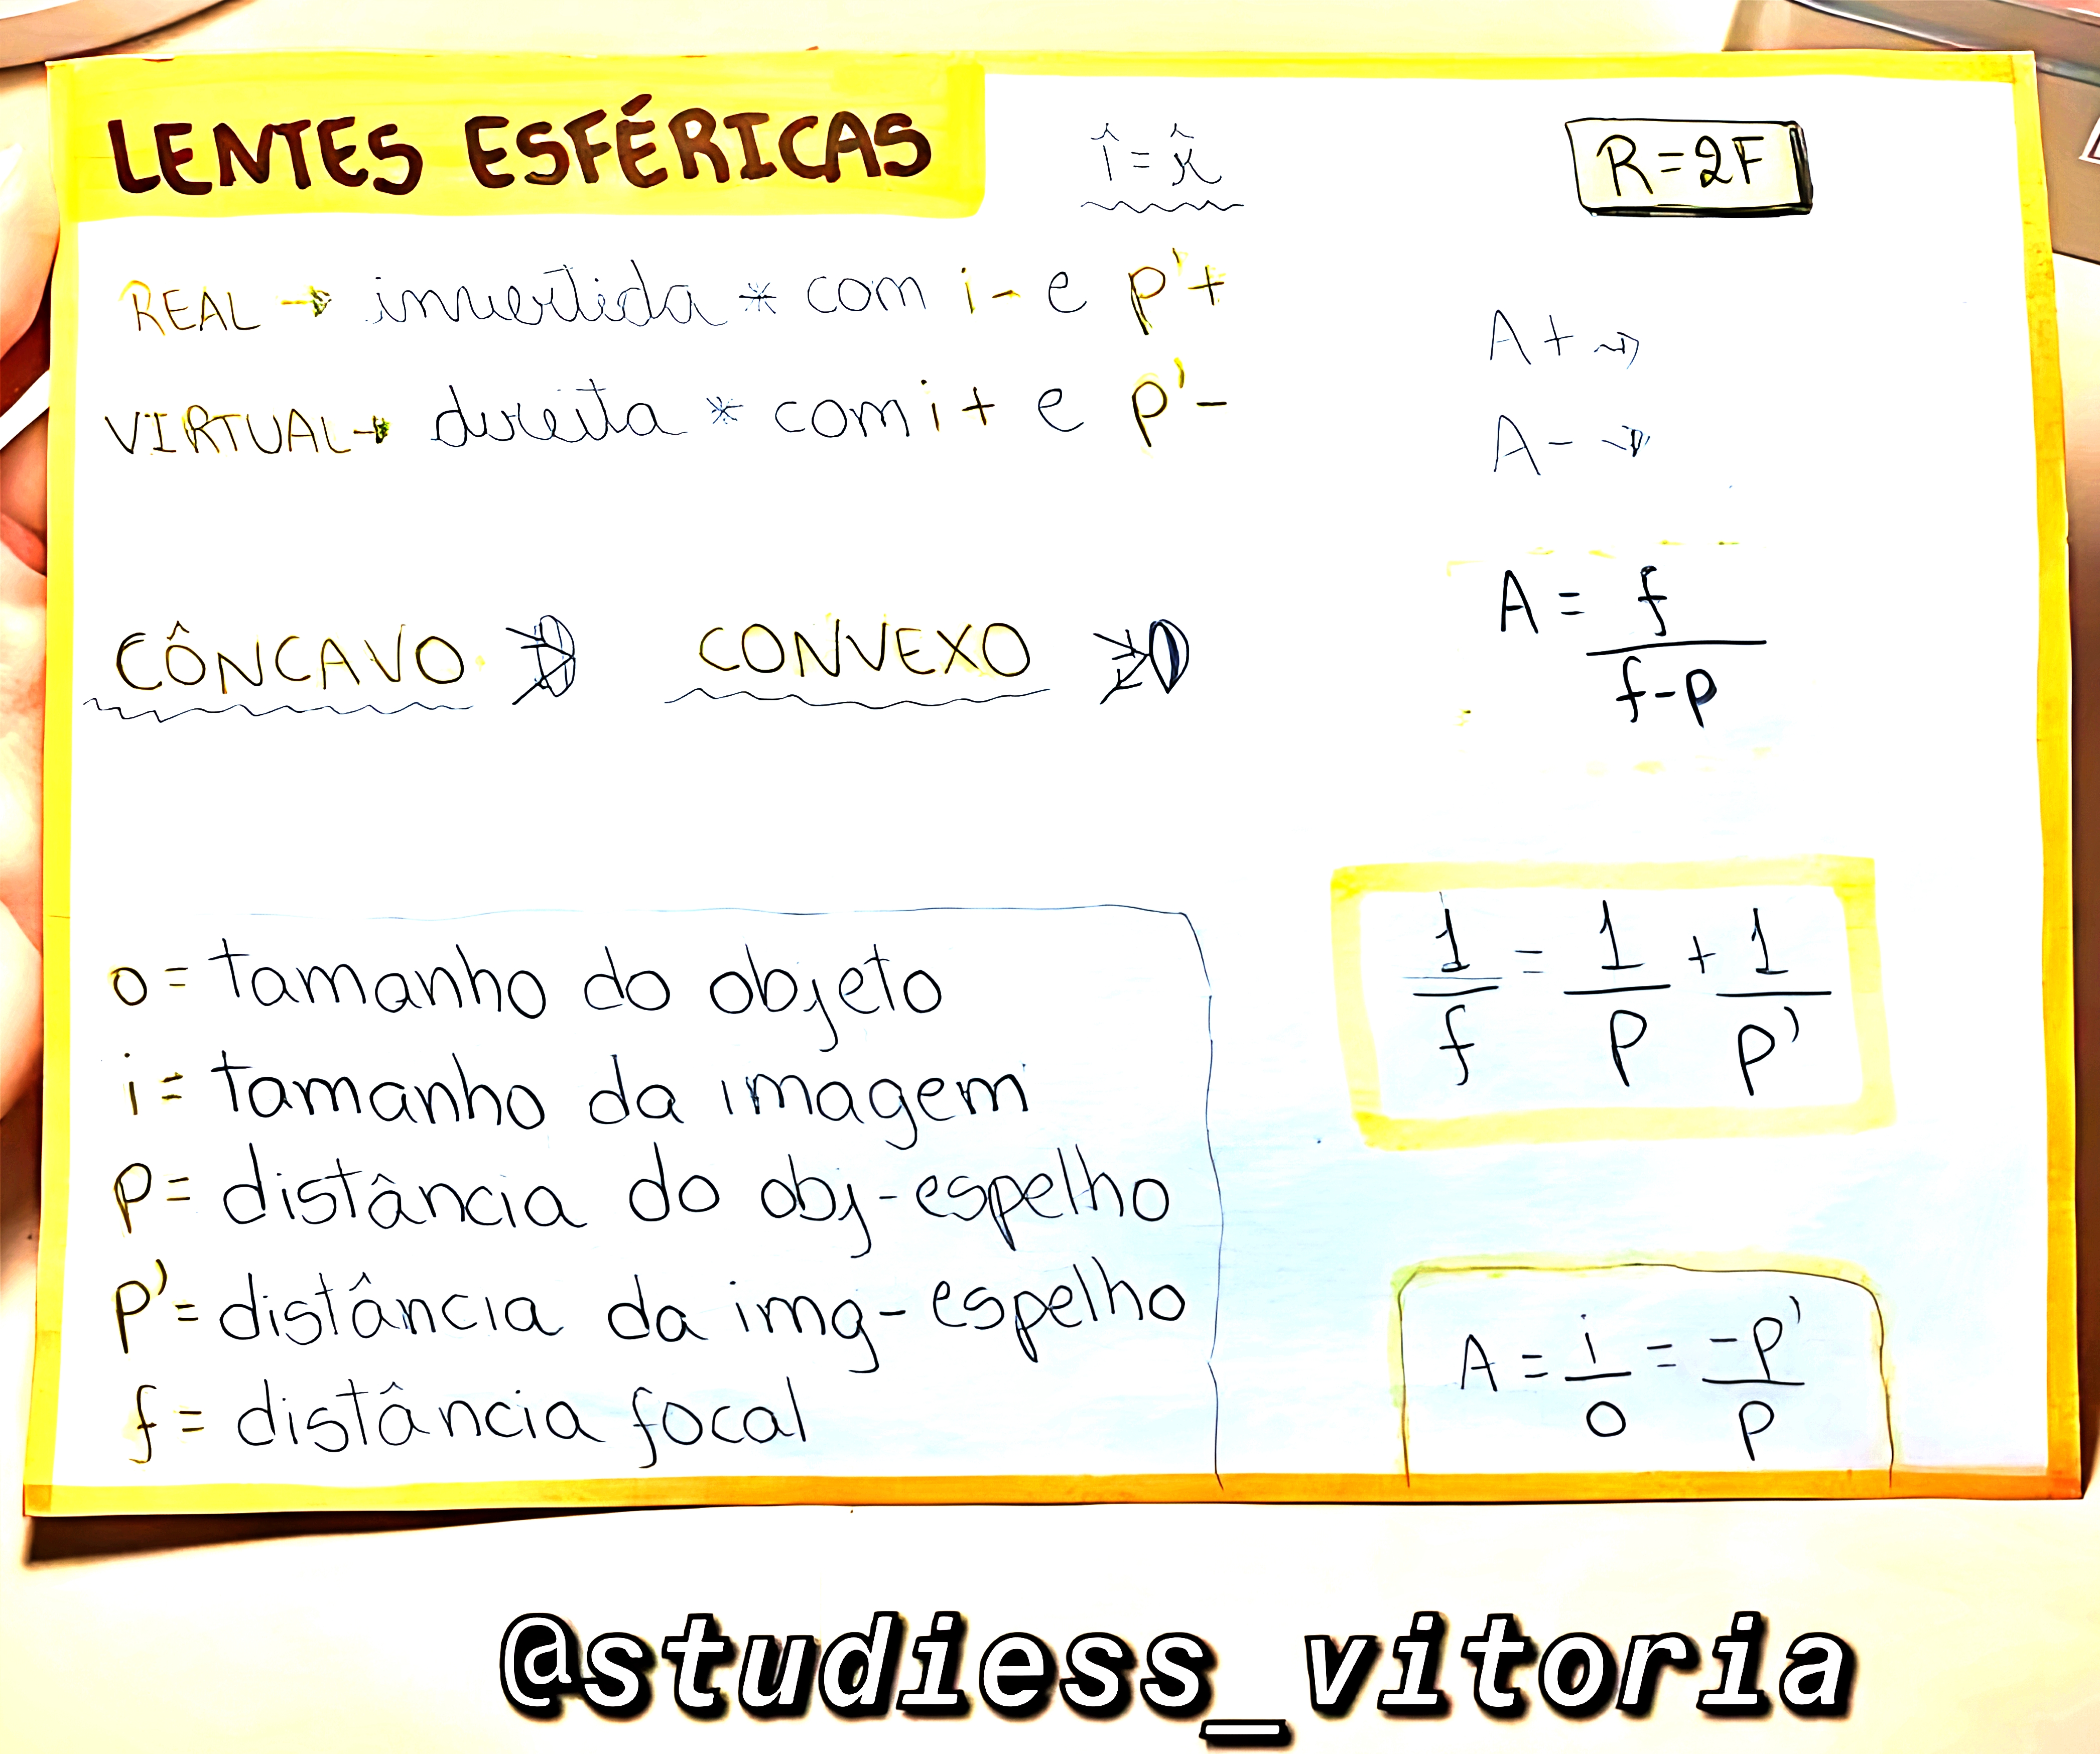 LENTES ESFÉRICAS
î = r̂
R=2F
REAL → invertida * com i- e p'+
VIRTUAL → direita * com i+ e p'-
A+ →
A- →
CÔNCAVO
CONVEXO
A = f / f-p
o = tamanho do objeto
i = tamanho da imagem
p = distância do obj-espelho
p' = distância da img-espelho
f = distância focal
1/f = 1/p + 1/p'
A = i/o = -p'/p
@studiess_vitoria